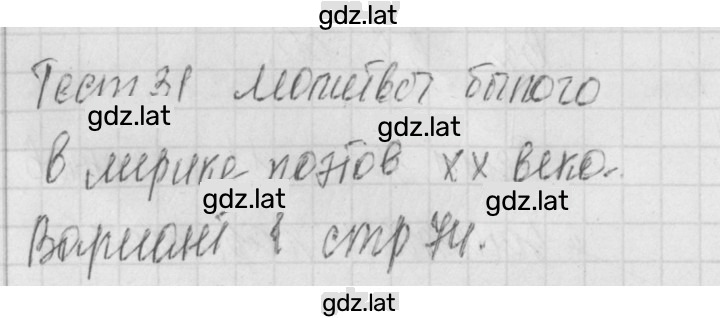 gdz.lat
Тест 31 Мотивы былого
gdz.lat
gdz.lat
в лирике поэтов XX века.
gdz.lat
gdz.lat
Вариант 1 стр 74.
gdz.lat